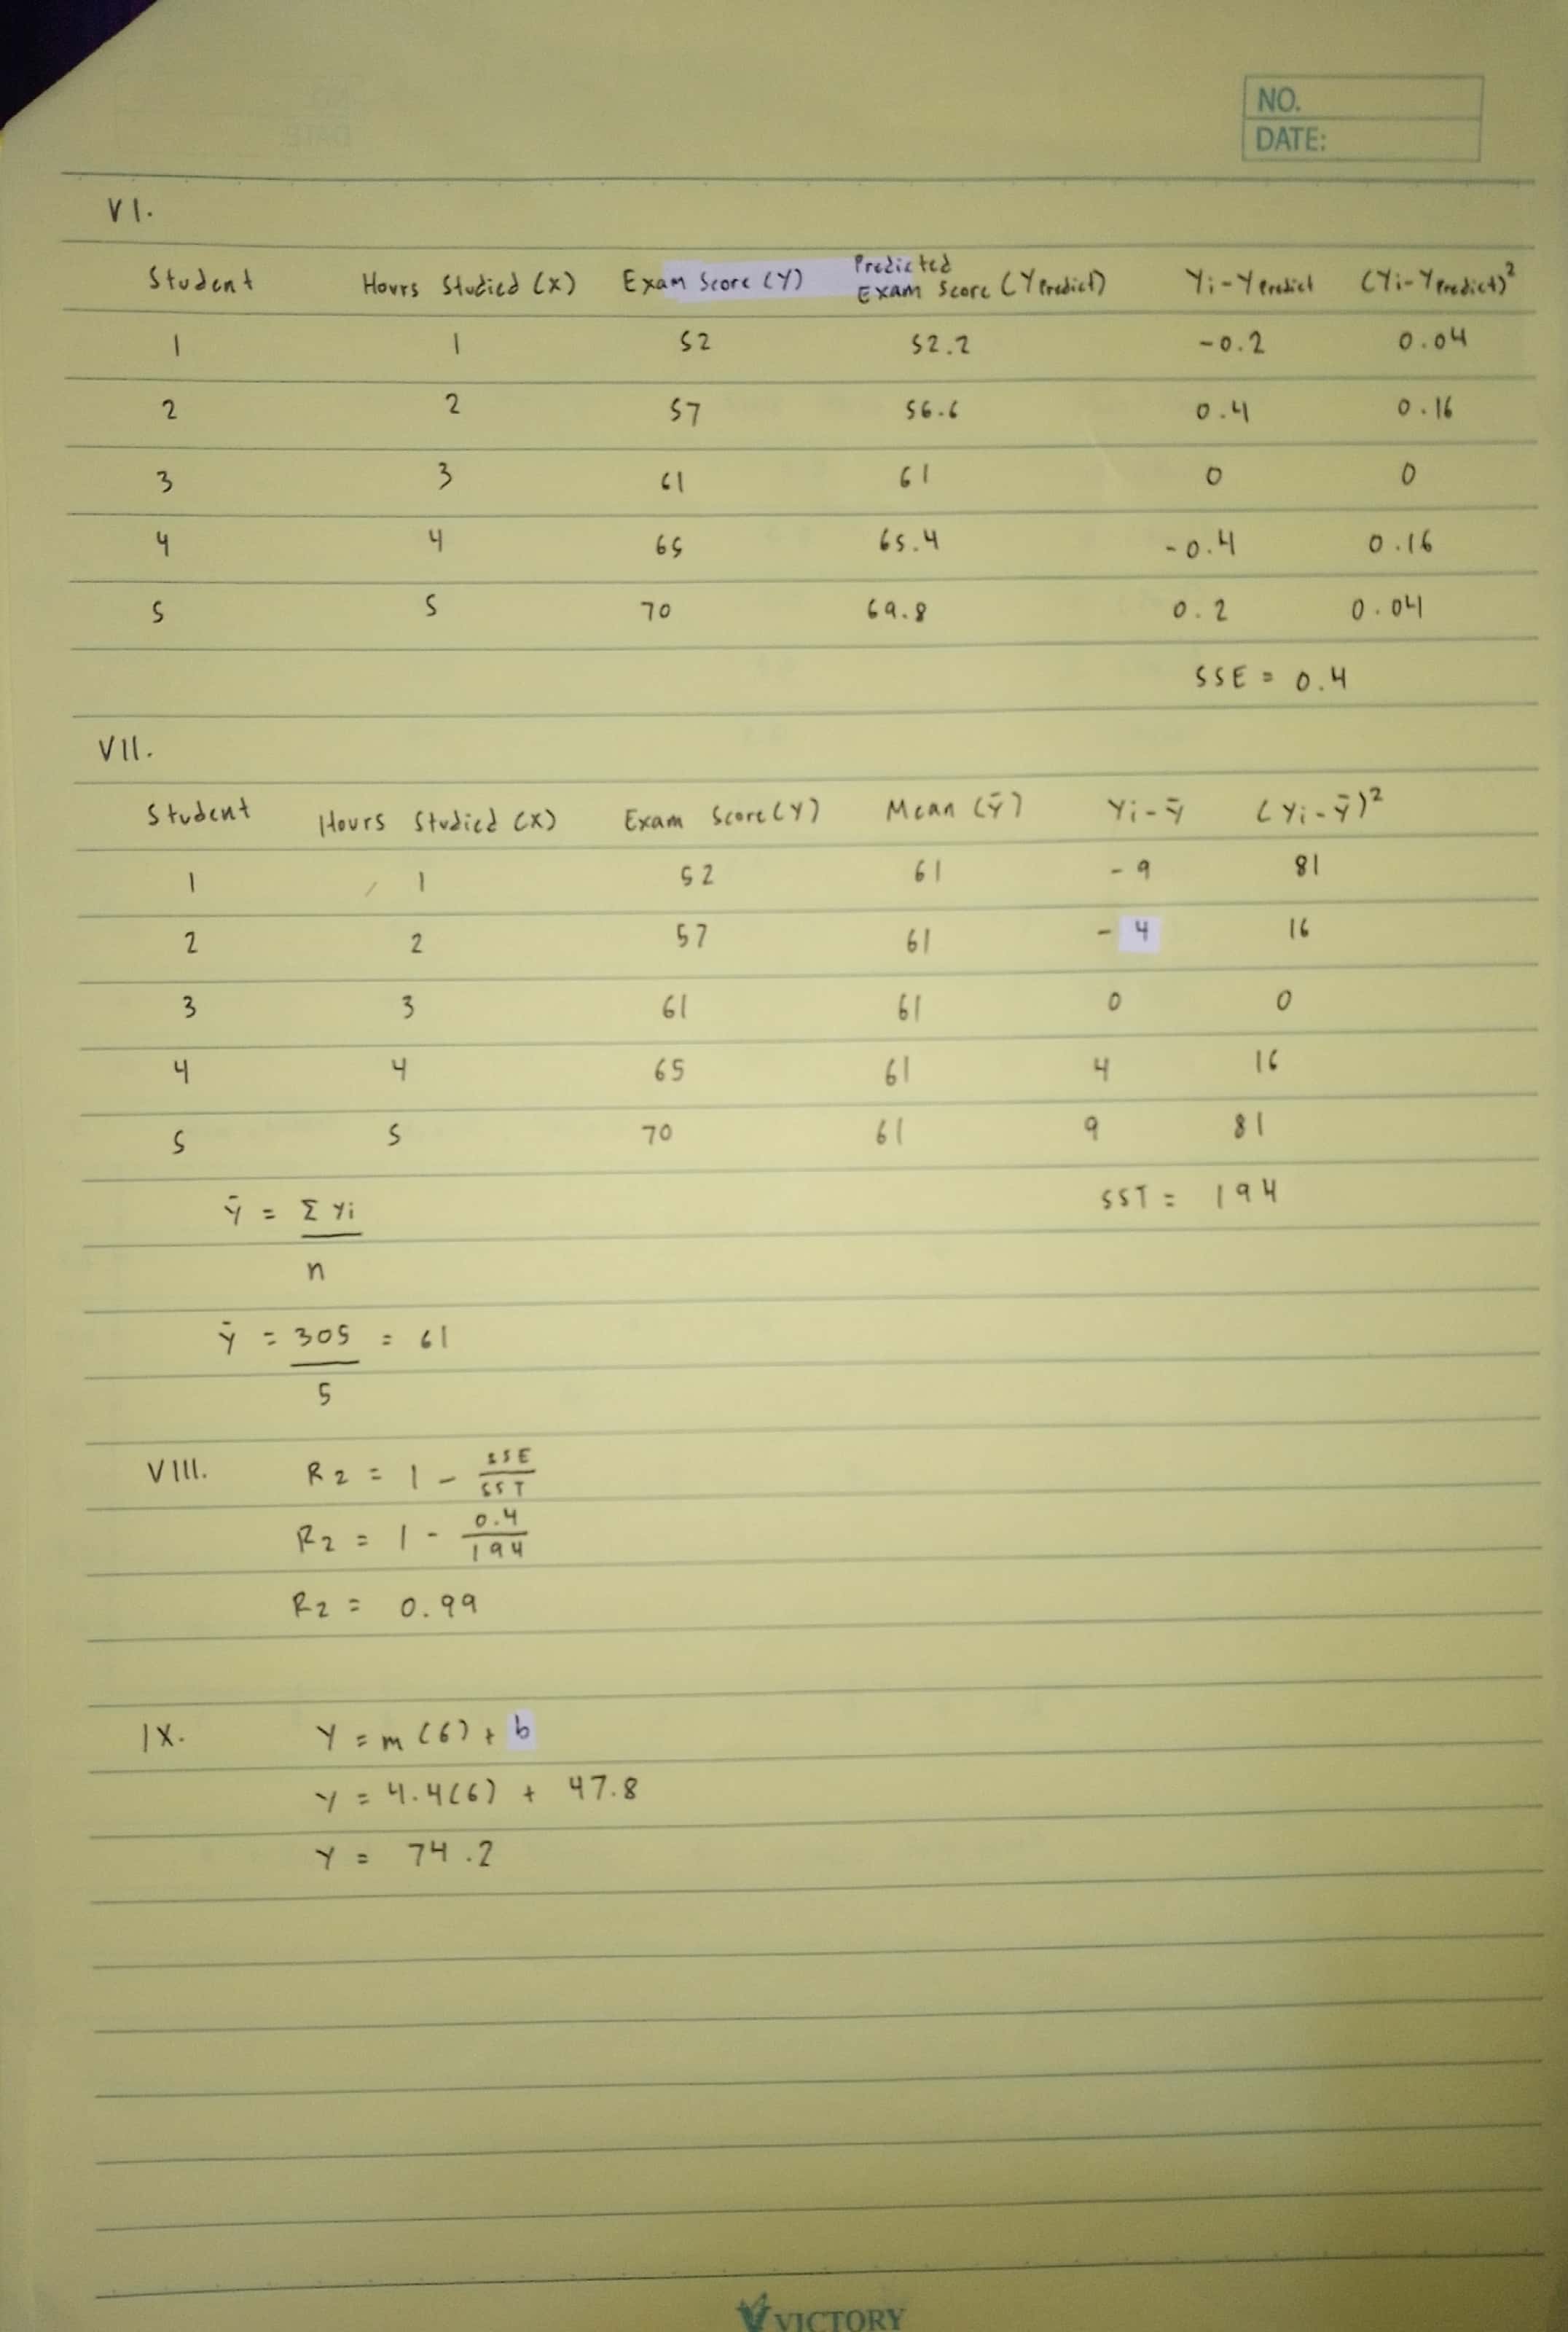 NO.
DATE:
VI.
Student Hours Studied (X) Exam Score (Y) Predicted Exam Score (Y Predict) Yi-Y Predict (Yi-Y Predict)²
1 1 52 52.2 -0.2 0.04
2 2 57 56.6 0.4 0.16
3 3 61 61 0 0
4 4 65 65.4 -0.4 0.16
5 5 70 69.8 0.2 0.04
SSE = 0.4
VII.
Student Hours Studied (X) Exam Score (Y) Mean (ȳ) Yi-ȳ (Yi-ȳ)²
1 1 52 61 -9 81
2 2 57 61 -4 16
3 3 61 61 0 0
4 4 65 61 4 16
5 5 70 61 9 81
SST = 194
ȳ = Σ Yi
n
ȳ = 305 = 61
5
VIII. R2 = 1 - SSE/SST
R2 = 1 - 0.4/194
R2 = 0.99
IX. Y = m(6) + b
Y = 4.4(6) + 47.8
Y = 74.2
VICTORY